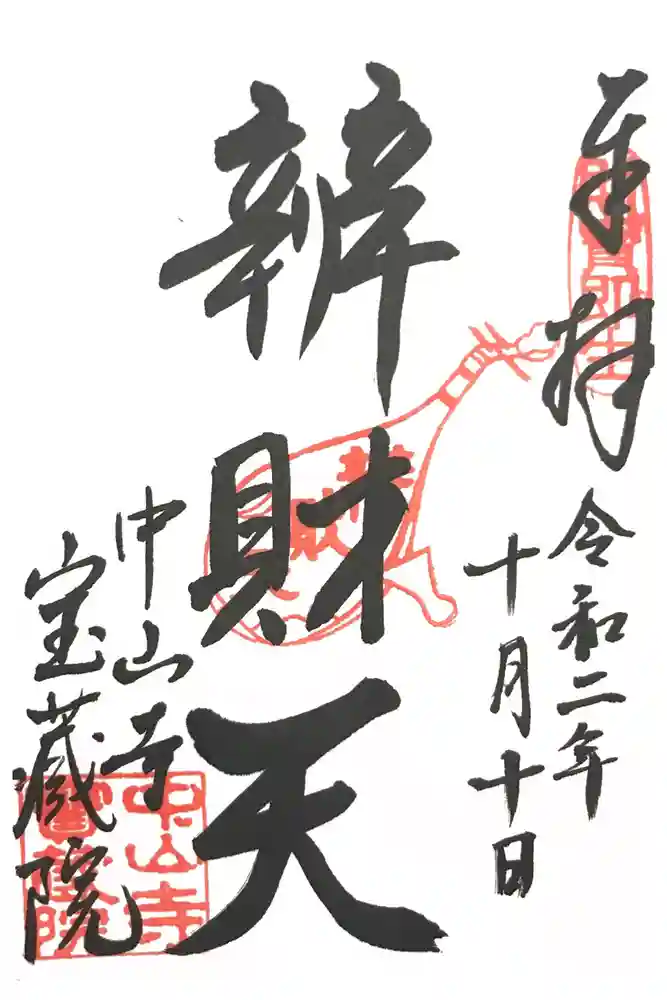 奉拝
令和二年
十月十日
辨財天
中山寺
宝蔵院
中山寺
寶蔵院